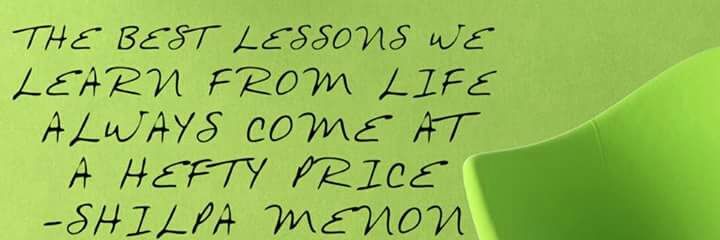 THE BEST LESSONS WE
LEARN FROM LIFE
ALWAYS COME AT
A HEFTY PRICE
-SHILPA MENON